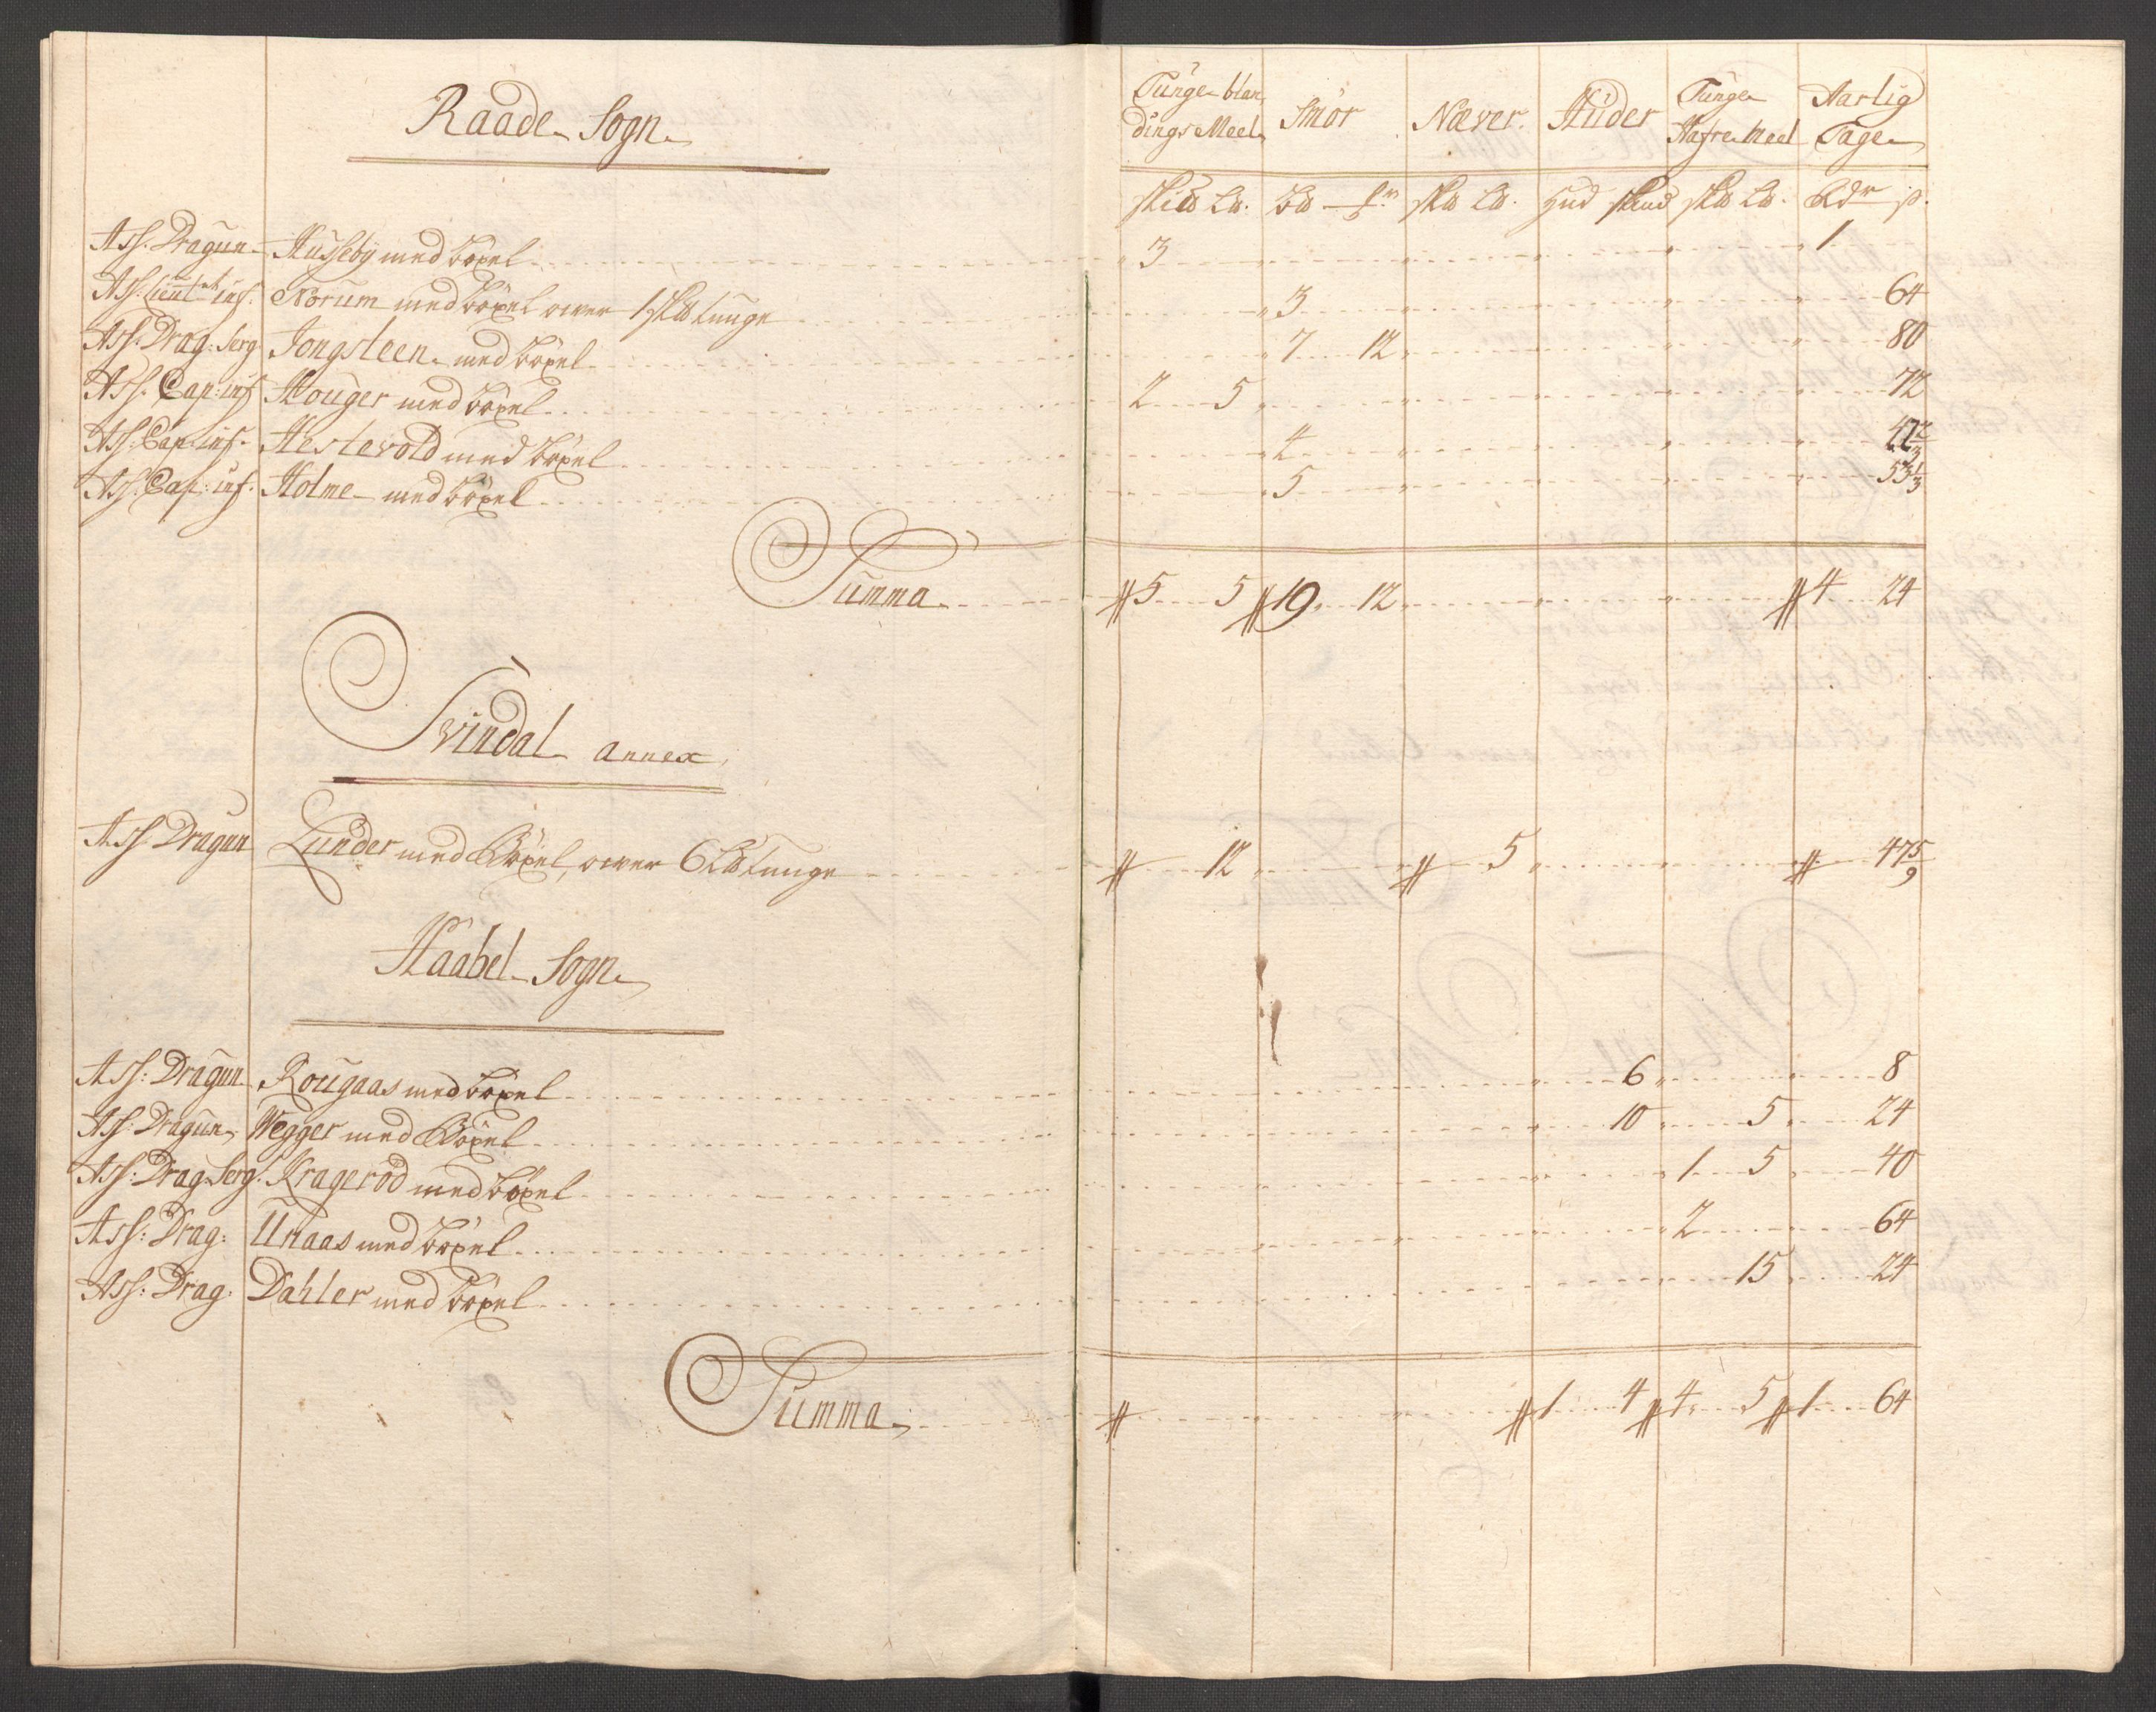 Raade Sogn
Tunge blan,
dings Meel
Smör
Næver.
Huder
Tunge
Hafre Meel
Aarlig
Tage
Skib Lb. Lb Skb Lb. Hud Skind Skb Lb. Rdr s.
Ass. Dragun Husseby med böxel 3 1
Ass: Lieutnt inf. Norum med böxel over 1 Skb tunge 3 64
Ass: Drag: Serg Jongsteen med böxel 7 12 80
Ass. Cap: inf Houger med böxel 2 5 72
Ass: Cap: inf. Hestevold med böxel 4 42 2/3
Ass: Cap: inf. Holme med böxel 5 53 1/3
Summa 5 5 19 12 4 24
Svindal annex
Ass Dragun Lunder med Böxel, over 6 Lb tunge 12 5 47 5/9
Haabel Sogn
Ass: Dragun Rougaas med böxel 6 8
Ass: Dragun Wegger med Böxel 10 5 24
Ass: Drag. Serg. Krageröd med böxel 1 5 40
Ass: Drag: Unaas med böxel 2 64
Ass: Drag. Dahler med böxel 15 24
Summa 1 4 4 5 1 64